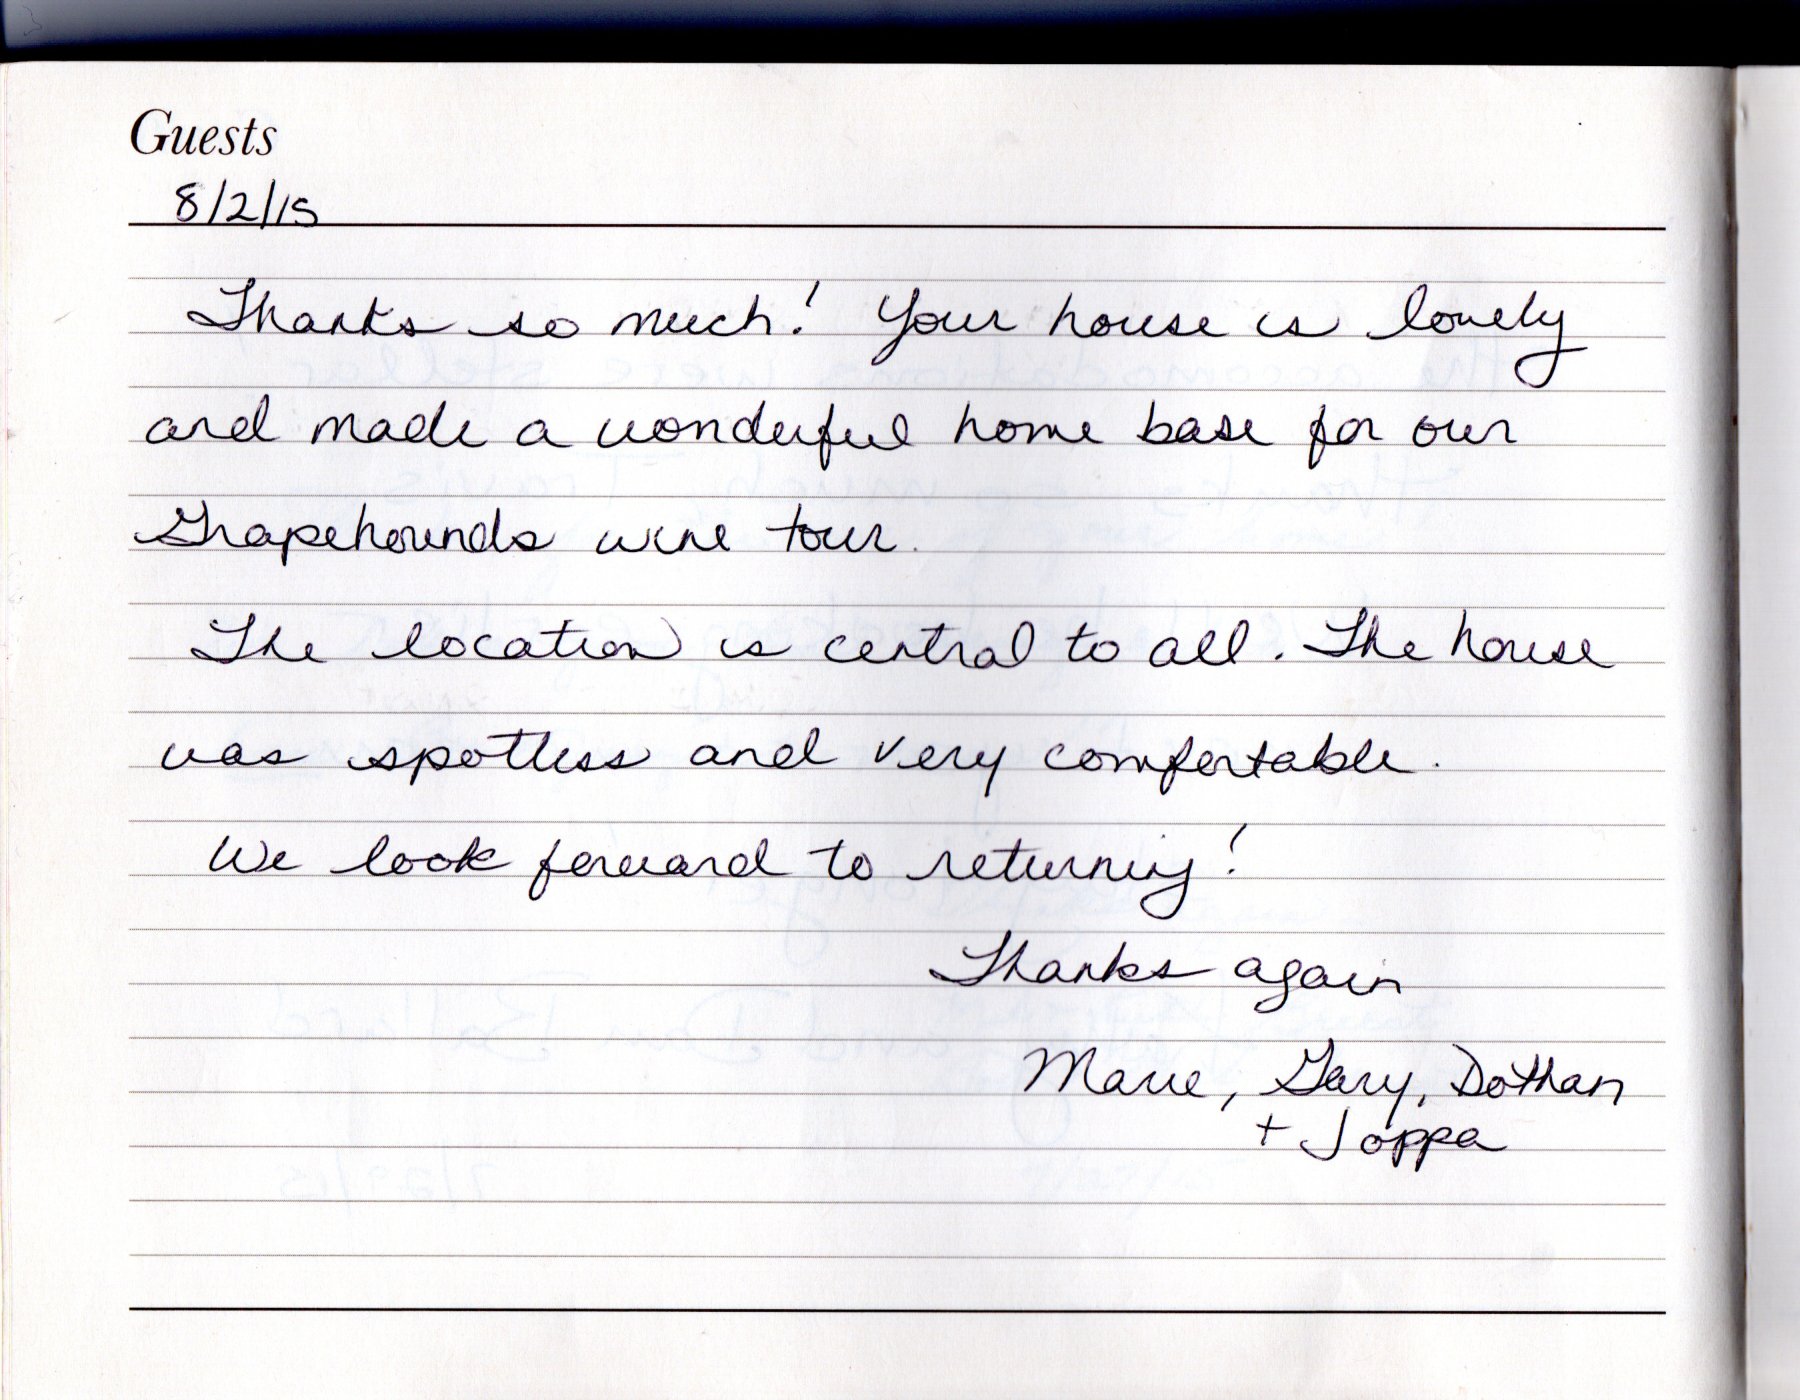 Guests
8/2/15
Thanks so much! Your house is lovely
and made a wonderful home base for our
Grapehounds wine tour.
The location is central to all. The house
was spotless and very comfortable.
We look forward to returning!
Thanks again
Marie, Gary, Dothan
+ Joppa